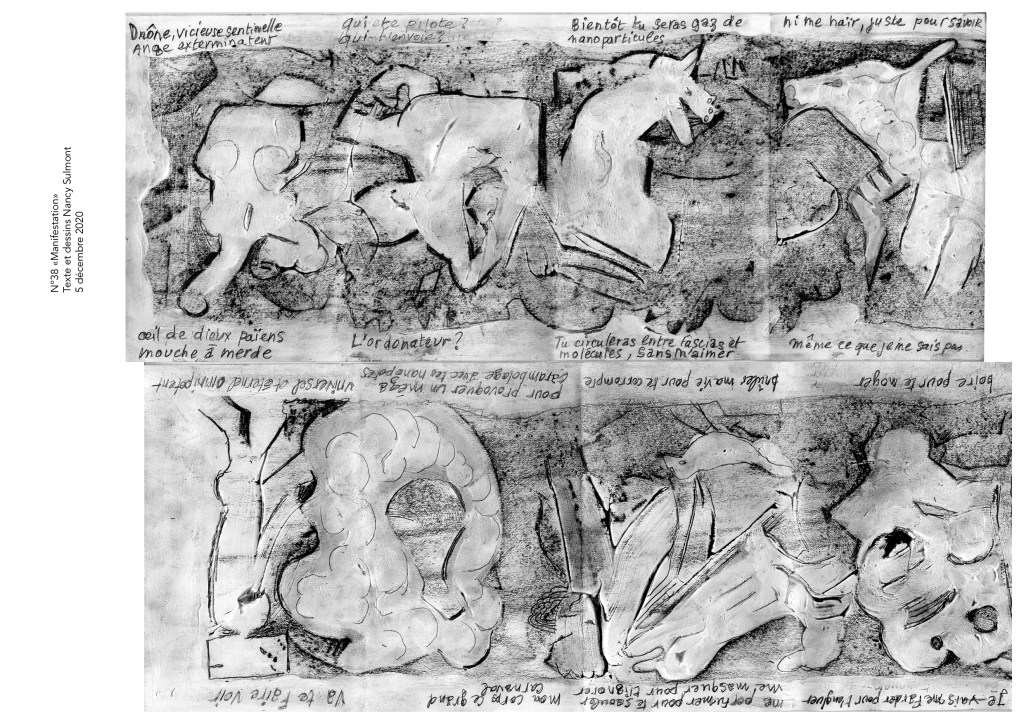 N°38 «Manifestation»
Texte et dessins Nancy Sulmont
5 décembre 2020
Drône, vicieuse sentinelle
Ange exterminateur
qui te pilote ?
qui t'envoie ?
Bientôt tu seras gaz de
nanoparticules
ni me haïr, juste pour savoir
œil de dieux païens
mouche à merde
L'ordonateur ?
Tu circuleras entre fascias et
molécules, sans m'aimer
même ce que je ne sais pas.
Je vais me farder pour
me parfumer pour te saouler
me masquer pour t'ignorer
mon corps le grand
Carnaval
Va te faire voir
boire pour te noyer
brûler ma vie pour te corrompre
pour provoquer un méga
Carambolage avec tes
universel et éternel omnipotent